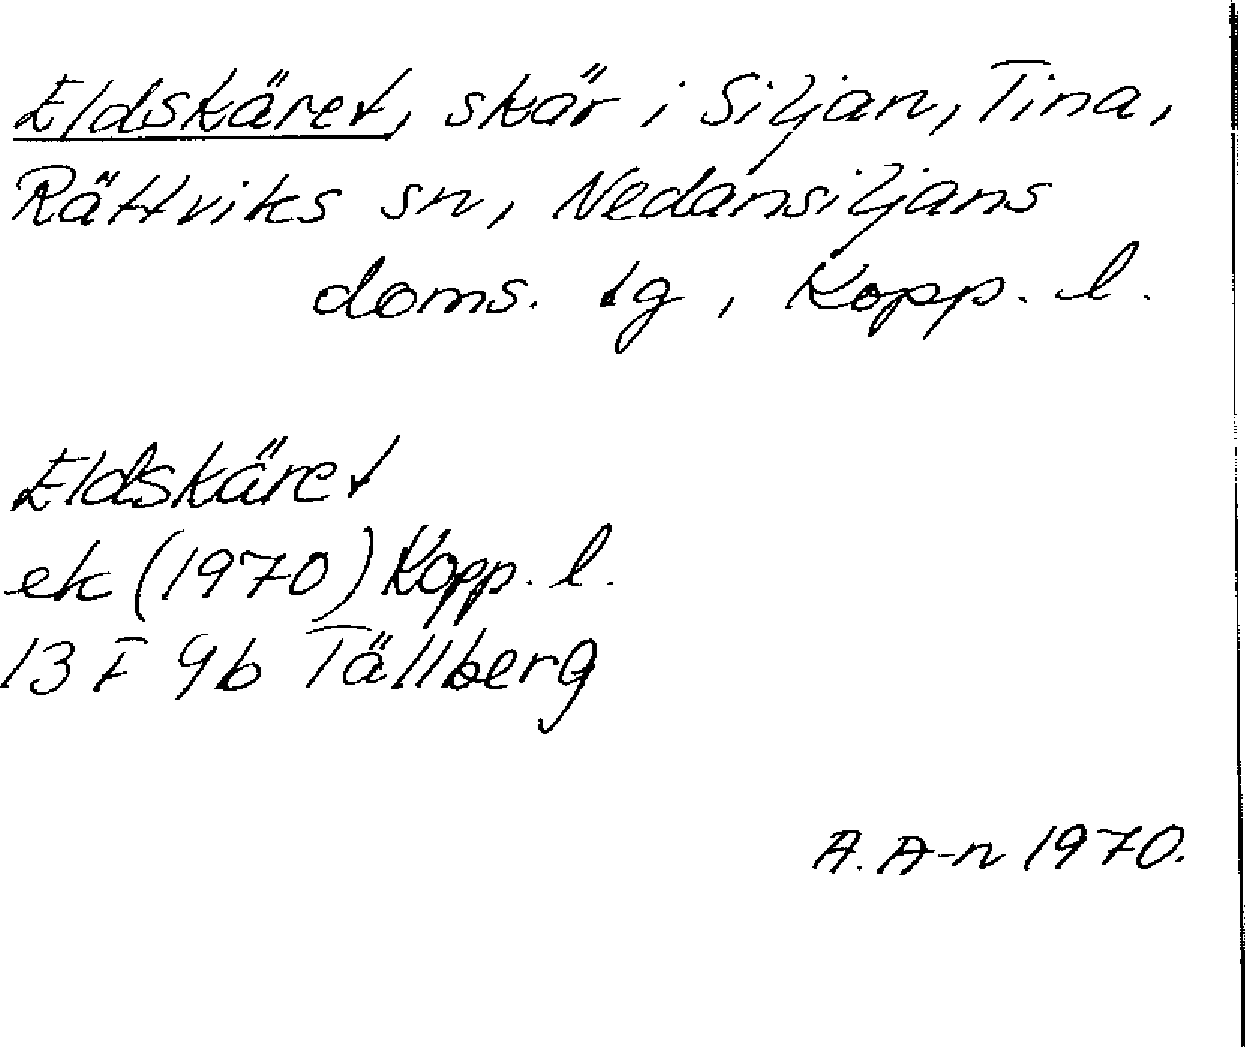 Eldskäret, skär i Siljan, Tina,
Rättviks sn, Nedansiljans
doms. tg, Kopp. l.
Eldskäret
ek (1970) Kopp. l.
13 F 9b Tällberg
A. A-n 1970.